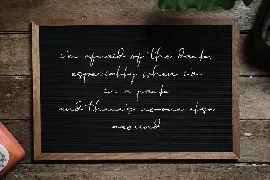 i'm afraid of the dark,
especially when i'm
in a park
and there's no one else
around